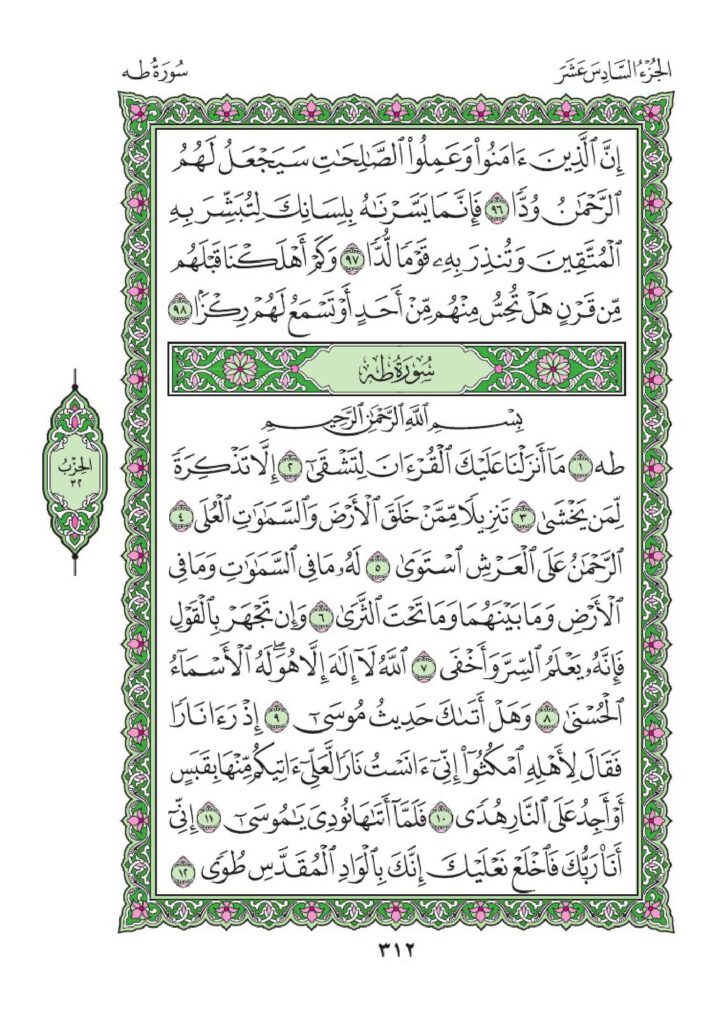 الجُزْءُ السَّادِسَ عَشَرَ
سُورَةُ طه
إِنَّ ٱلَّذِينَ ءَامَنُواْ وَعَمِلُواْ ٱلصَّٰلِحَٰتِ سَيَجْعَلُ لَهُمُ
ٱلرَّحْمَٰنُ وُدّٗا ٩٦ فَإِنَّمَا يَسَّرْنَٰهُ بِلِسَانِكَ لِتُبَشِّرَ بِهِ
ٱلْمُتَّقِينَ وَتُنذِرَ بِهِۦ قَوْمٗا لُّدّٗا ٩٧ وَكَمْ أَهْلَكْنَا قَبْلَهُم
مِّن قَرْنٍ هَلْ تُحِسُّ مِنْهُم مِّنْ أَحَدٍ أَوْ تَسْمَعُ لَهُمْ رِكْزَۢا ٩٨
سُورَةُ طه
بِسْمِ ٱللَّهِ ٱلرَّحْمَٰنِ ٱلرَّحِيمِ
طه ١ مَآ أَنزَلْنَا عَلَيْكَ ٱلْقُرْءَانَ لِتَشْقَىٰٓ ٢ إِلَّا تَذْكِرَةٗ
لِّمَن يَخْشَىٰ ٣ تَنزِيلٗا مِّمَّنْ خَلَقَ ٱلْأَرْضَ وَٱلسَّمَٰوَٰتِ ٱلْعُلَى ٤
ٱلرَّحْمَٰنُ عَلَى ٱلْعَرْشِ ٱسْتَوَىٰ ٥ لَهُۥ مَا فِي ٱلسَّمَٰوَٰتِ وَمَا فِي
ٱلْأَرْضِ وَمَا بَيْنَهُمَا وَمَا تَحْتَ ٱلثَّرَىٰ ٦ وَإِن تَجْهَرْ بِٱلْقَوْلِ
فَإِنَّهُۥ يَعْلَمُ ٱلسِّرَّ وَأَخْفَى ٧ ٱللَّهُ لَآ إِلَٰهَ إِلَّا هُوَۖ لَهُ ٱلْأَسْمَآءُ
ٱلْحُسْنَىٰ ٨ وَهَلْ أَتَىٰكَ حَدِيثُ مُوسَىٰٓ ٩ إِذْ رَءَا نَارٗا
فَقَالَ لِأَهْلِهِ ٱمْكُثُوٓاْ إِنِّيٓ ءَانَسْتُ نَارٗا لَّعَلِّيٓ ءَاتِيكُم مِّنْهَا بِقَبَسٍ
أَوْ أَجِدُ عَلَى ٱلنَّارِ هُدٗى ١٠ فَلَمَّآ أَتَىٰهَا نُودِيَ يَٰمُوسَىٰٓ ١١ إِنِّيٓ
أَنَا۠ رَبُّكَ فَٱخْلَعْ نَعْلَيْكَ إِنَّكَ بِٱلْوَادِ ٱلْمُقَدَّسِ طُوٗى ١٢
الحِزْبُ
٣٢
٣١٢